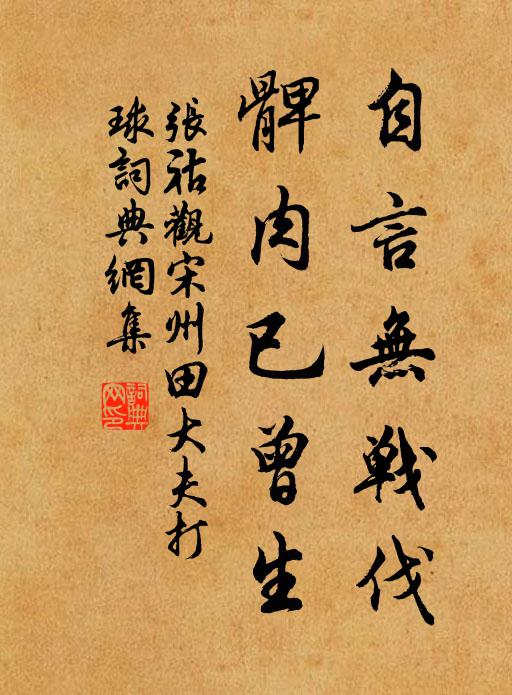 自言無戰伐
髀肉已曾生
張祜觀宋州田大夫打
球詞典網集
詞典
网印